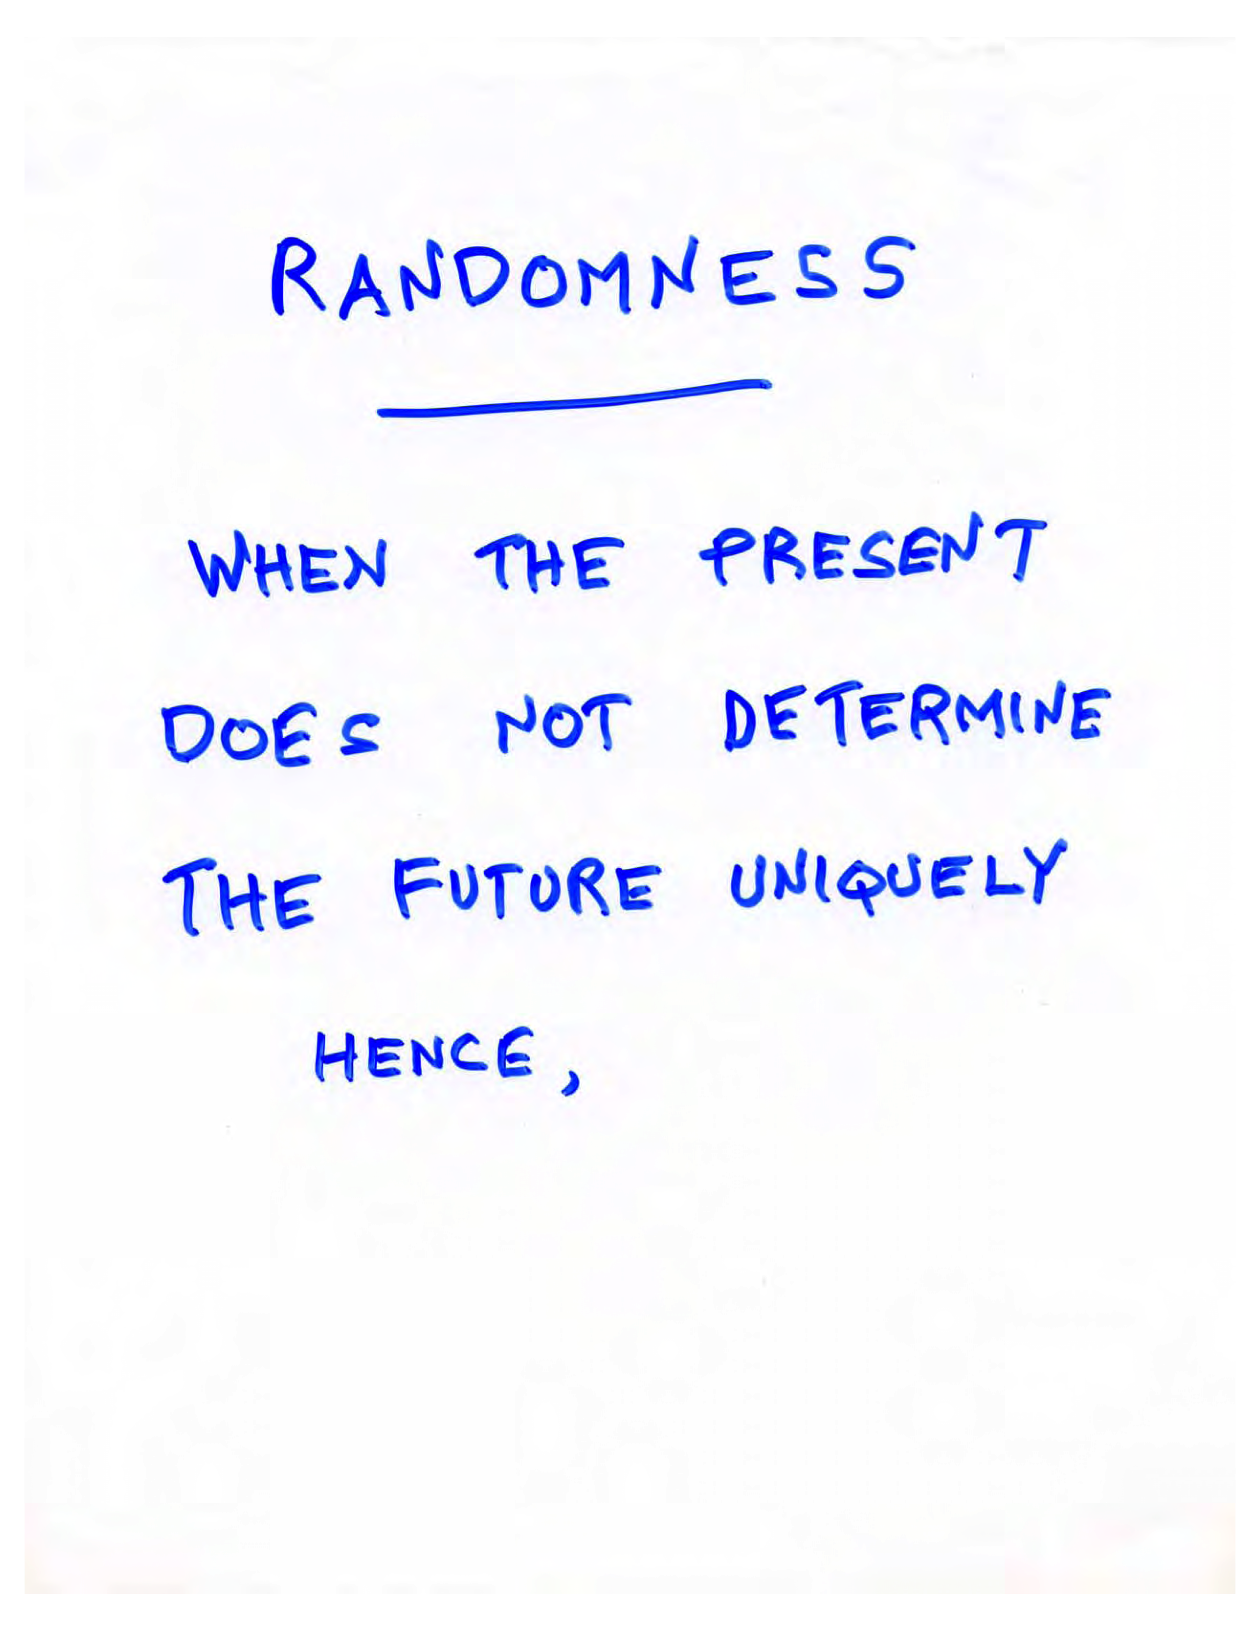 RANDOMNESS
WHEN THE PRESENT
DOES NOT DETERMINE
THE FUTURE UNIQUELY
HENCE,